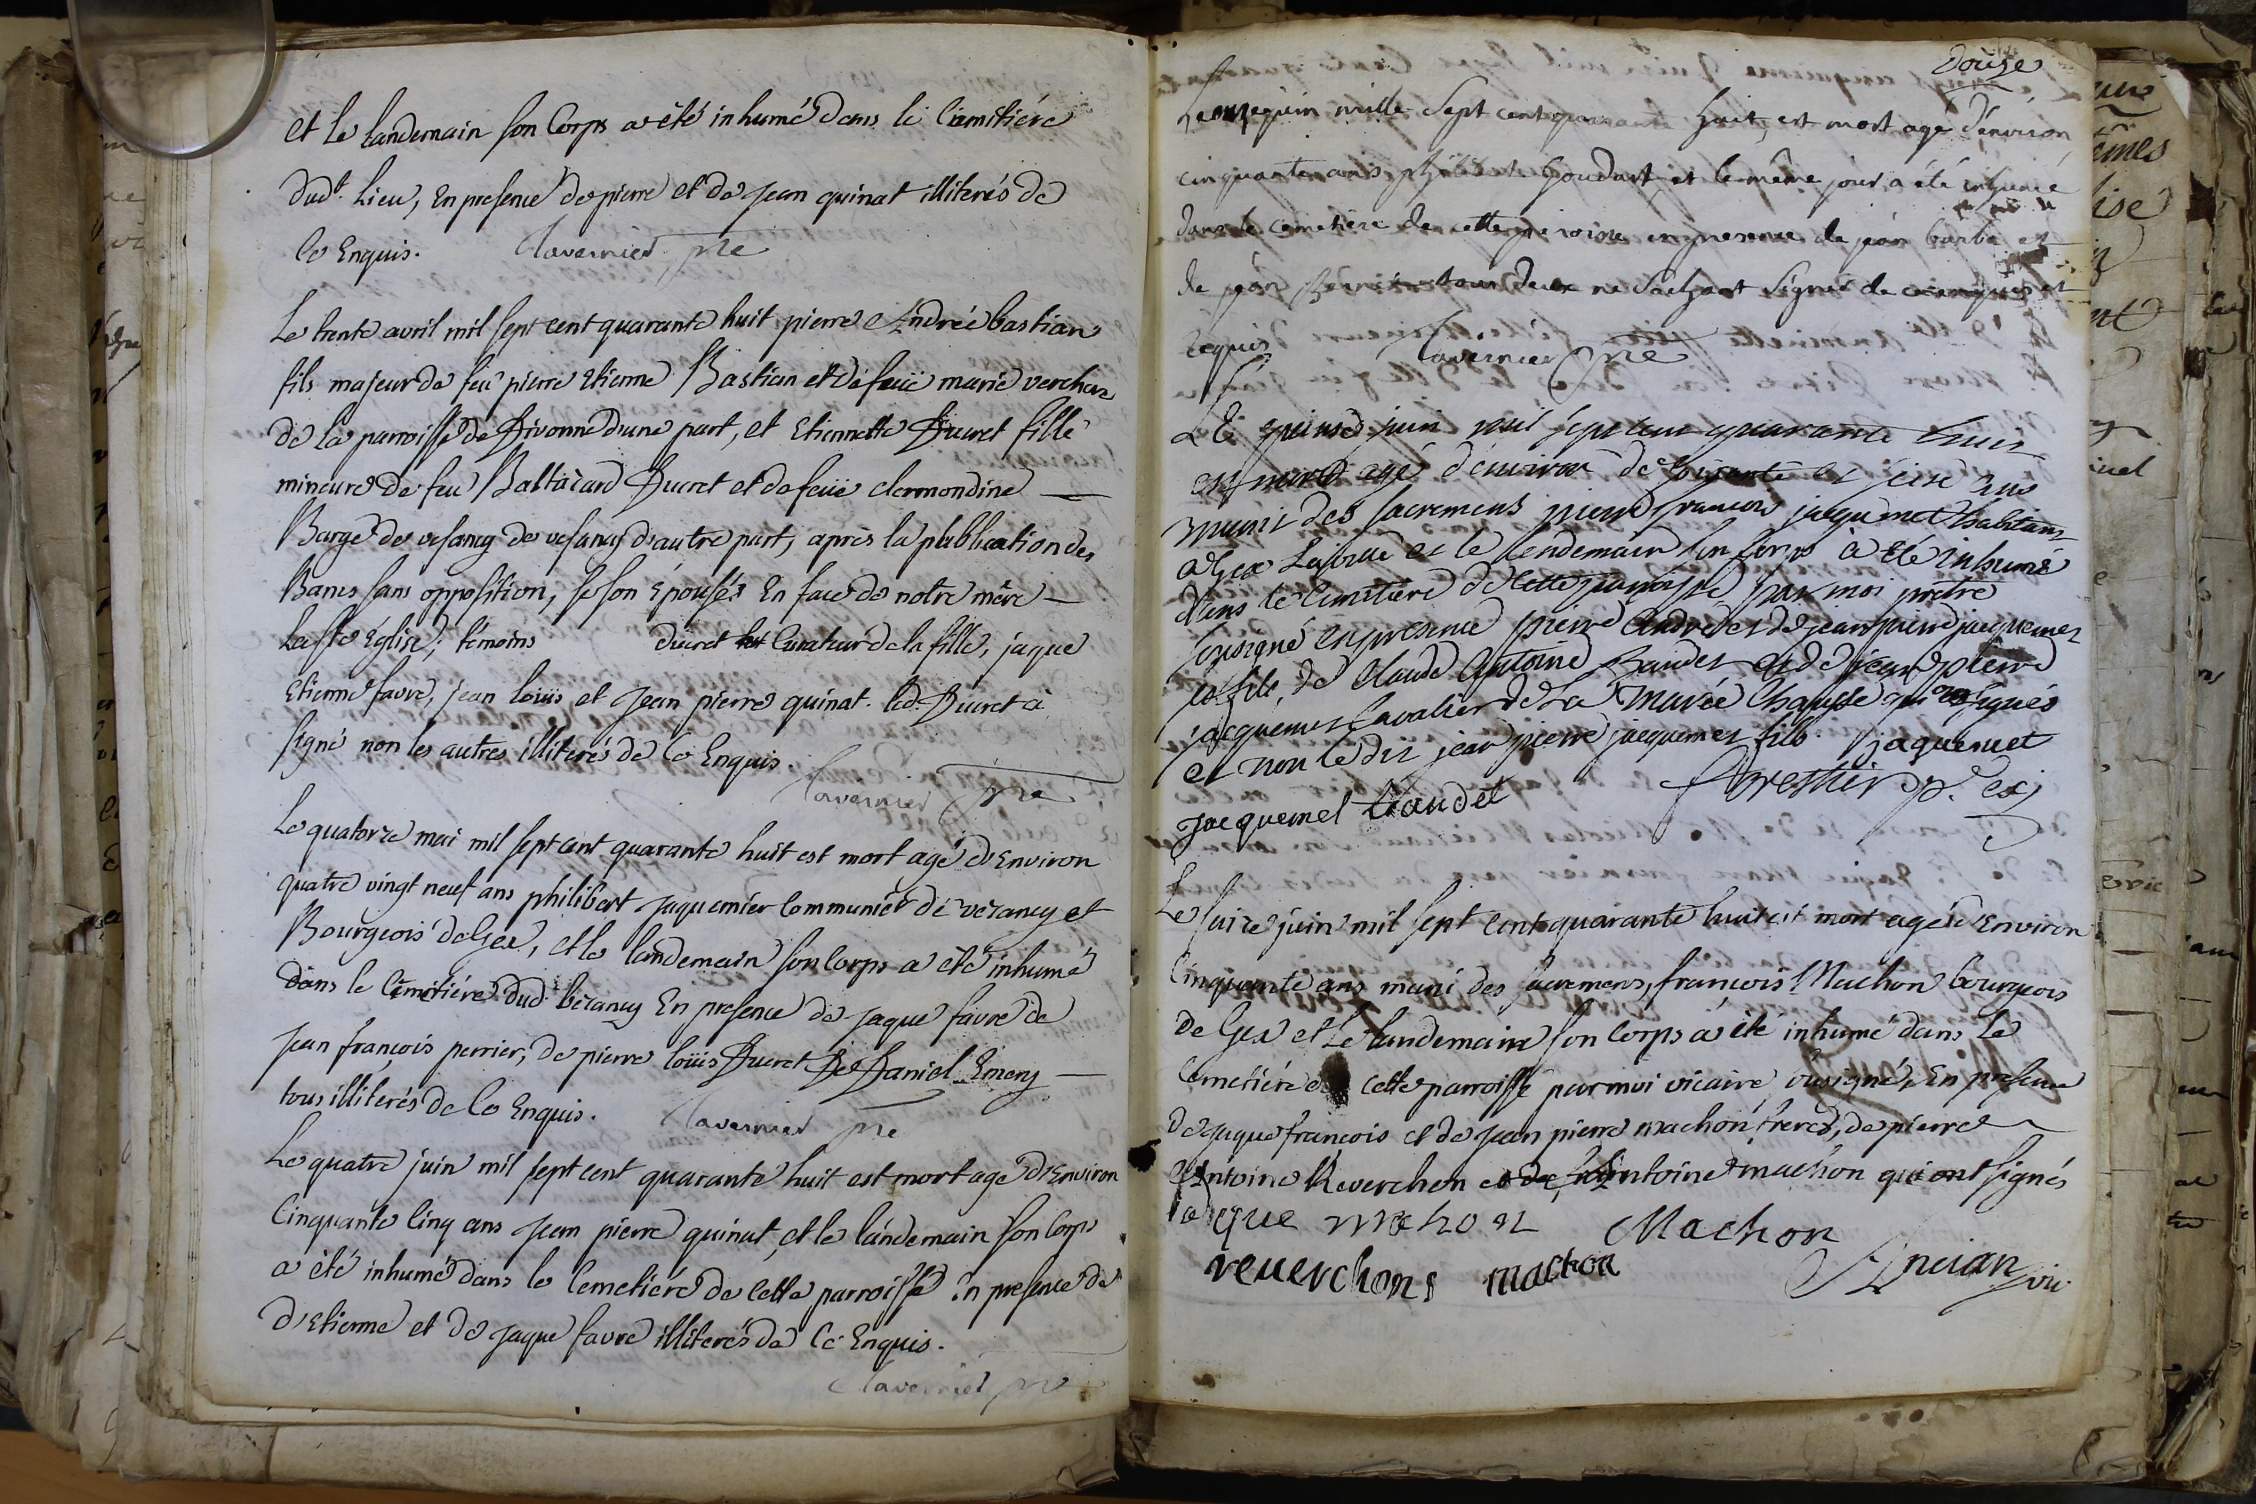 et le landemain son Corps a été inhumé dans le Cimétiére
dud.t Lieu, En presence de pierre et de jean quinat illiterés de
Ce Enquis. Tavernier pre
Le trente avril mil sept cent quarante huit, pierre André bastian
fils majeur de feu pierre Etienne Bastian et de feüe marie verchere
de la parroisse de Divonne d'une part, et Etiennette Ducret fille
mineure de feu Baltazard Ducret et de feüe clermondine
Barge de vesancy de vesancy d'autre part, après la publication des
Bancs sans opposition, se son épousés En face de notre mére
la ste église; témoins ducret Curateur de la fille, jaque
Etienne favre, jean loüis et jean pierre quinat. led. Ducret à
signé non les autres illiterés de Ce Enquis.
Tavernier pre
Le quatorze mai mil sept cent quarante huit est mort agé d'Environ
quatre vingt neuf ans philibert jaquemier Communiér de vezancy et
Bourgeois de Gex, et le landemain son Corps a été inhumé
dans le Cimétiére dud. vezancy En presence de jaque favre de
jean françois perrier, de pierre loüis Ducret De Daniel Emery
tous illiterés de Ce Enquis. Tavernier pre
Le quatre juin mil sept cent quarante huit est mort agé d'Environ
Cinquante Cinq ans jean pierre quinat, et le landemain son Corps
a été inhumé dans le Cemetiére de Cette parroisse En presence de
d'Etienne et de jaque favre illiterés de Ce Enquis.
Tavernier pre
Douze
Le onze juin mille sept cent quarante huit, est mort agé d'environ
cinquante ans Goudart, et le même jour a été inhumé
dans le cemetiere de cette paroisse en presence de jean barbe et
de jean tous deux ne sachant signer de ce enquis et
requis Tavernier pre
Le quinse juin mil sept cent quarante huit
est mort agé d'environ de soixante et seize ans
munit des sacremens pierre francois jaquemet habitant
a Gex et le lendemain son corps à été inhumé
dans le cimetiere de cette parroisse par moi prêtre
sousigné en presence pierre andré et de jean pierre jacquemet
ses fils, de Claude Antoine et de jean pierre
jacquemet Cavalier de La Marée Chaussée qui ont signés
et non le dit jean pierre jacquemet fils. jaquemet
jacquemet Forestier p.
Le saize juin mil sept Cent quarante huit est mort agé d'Environ
Cinquante ans muni des sacremens, françois Machon bourgeois
de Gex et Le landemain son Corps à été inhumé dans le
Cemetiére de cette parroisse par moi vicaire sousigné, En presence
de jaque françois et de jean pierre machon frères, de pierre
Antoine Reverchon et de Antoine machon qui ont signés
jaque mahon Machon
reuerchon machon Ancian vic.